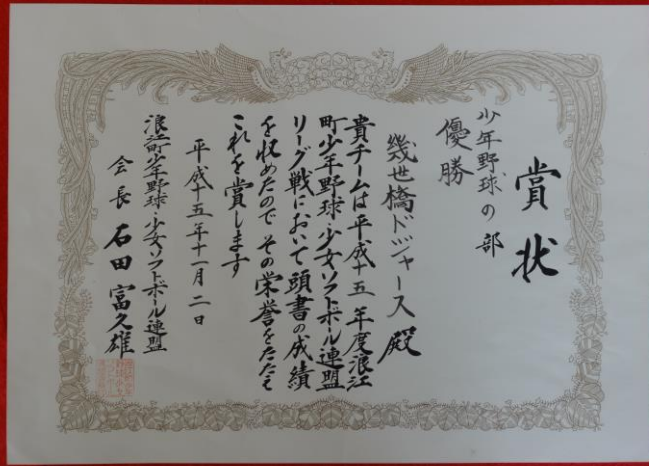 賞状
少年野球の部
優勝
幾世橋ドジャース殿
貴チームは平成十五年度浪江
町少年野球・少女ソフトボール連盟
リーグ戦において頭書の成績
を収めたのでその栄誉をたたえ
これを賞します
平成十五年十一月二日
浪江町少年野球・少女ソフトボール連盟
会長 石田富久雄